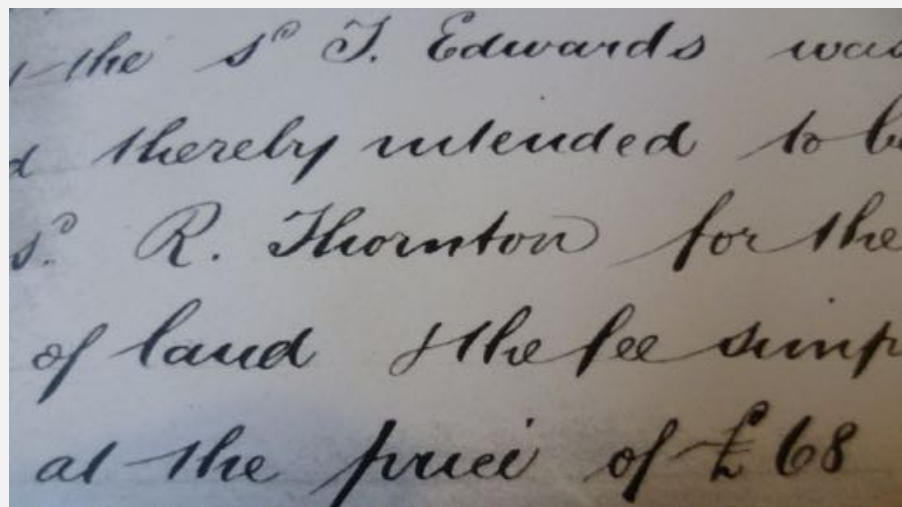 the sd T. Edwards was
d thereby intended to be
sd R. Thornton for the
of land & the fee simp
at the price of £68